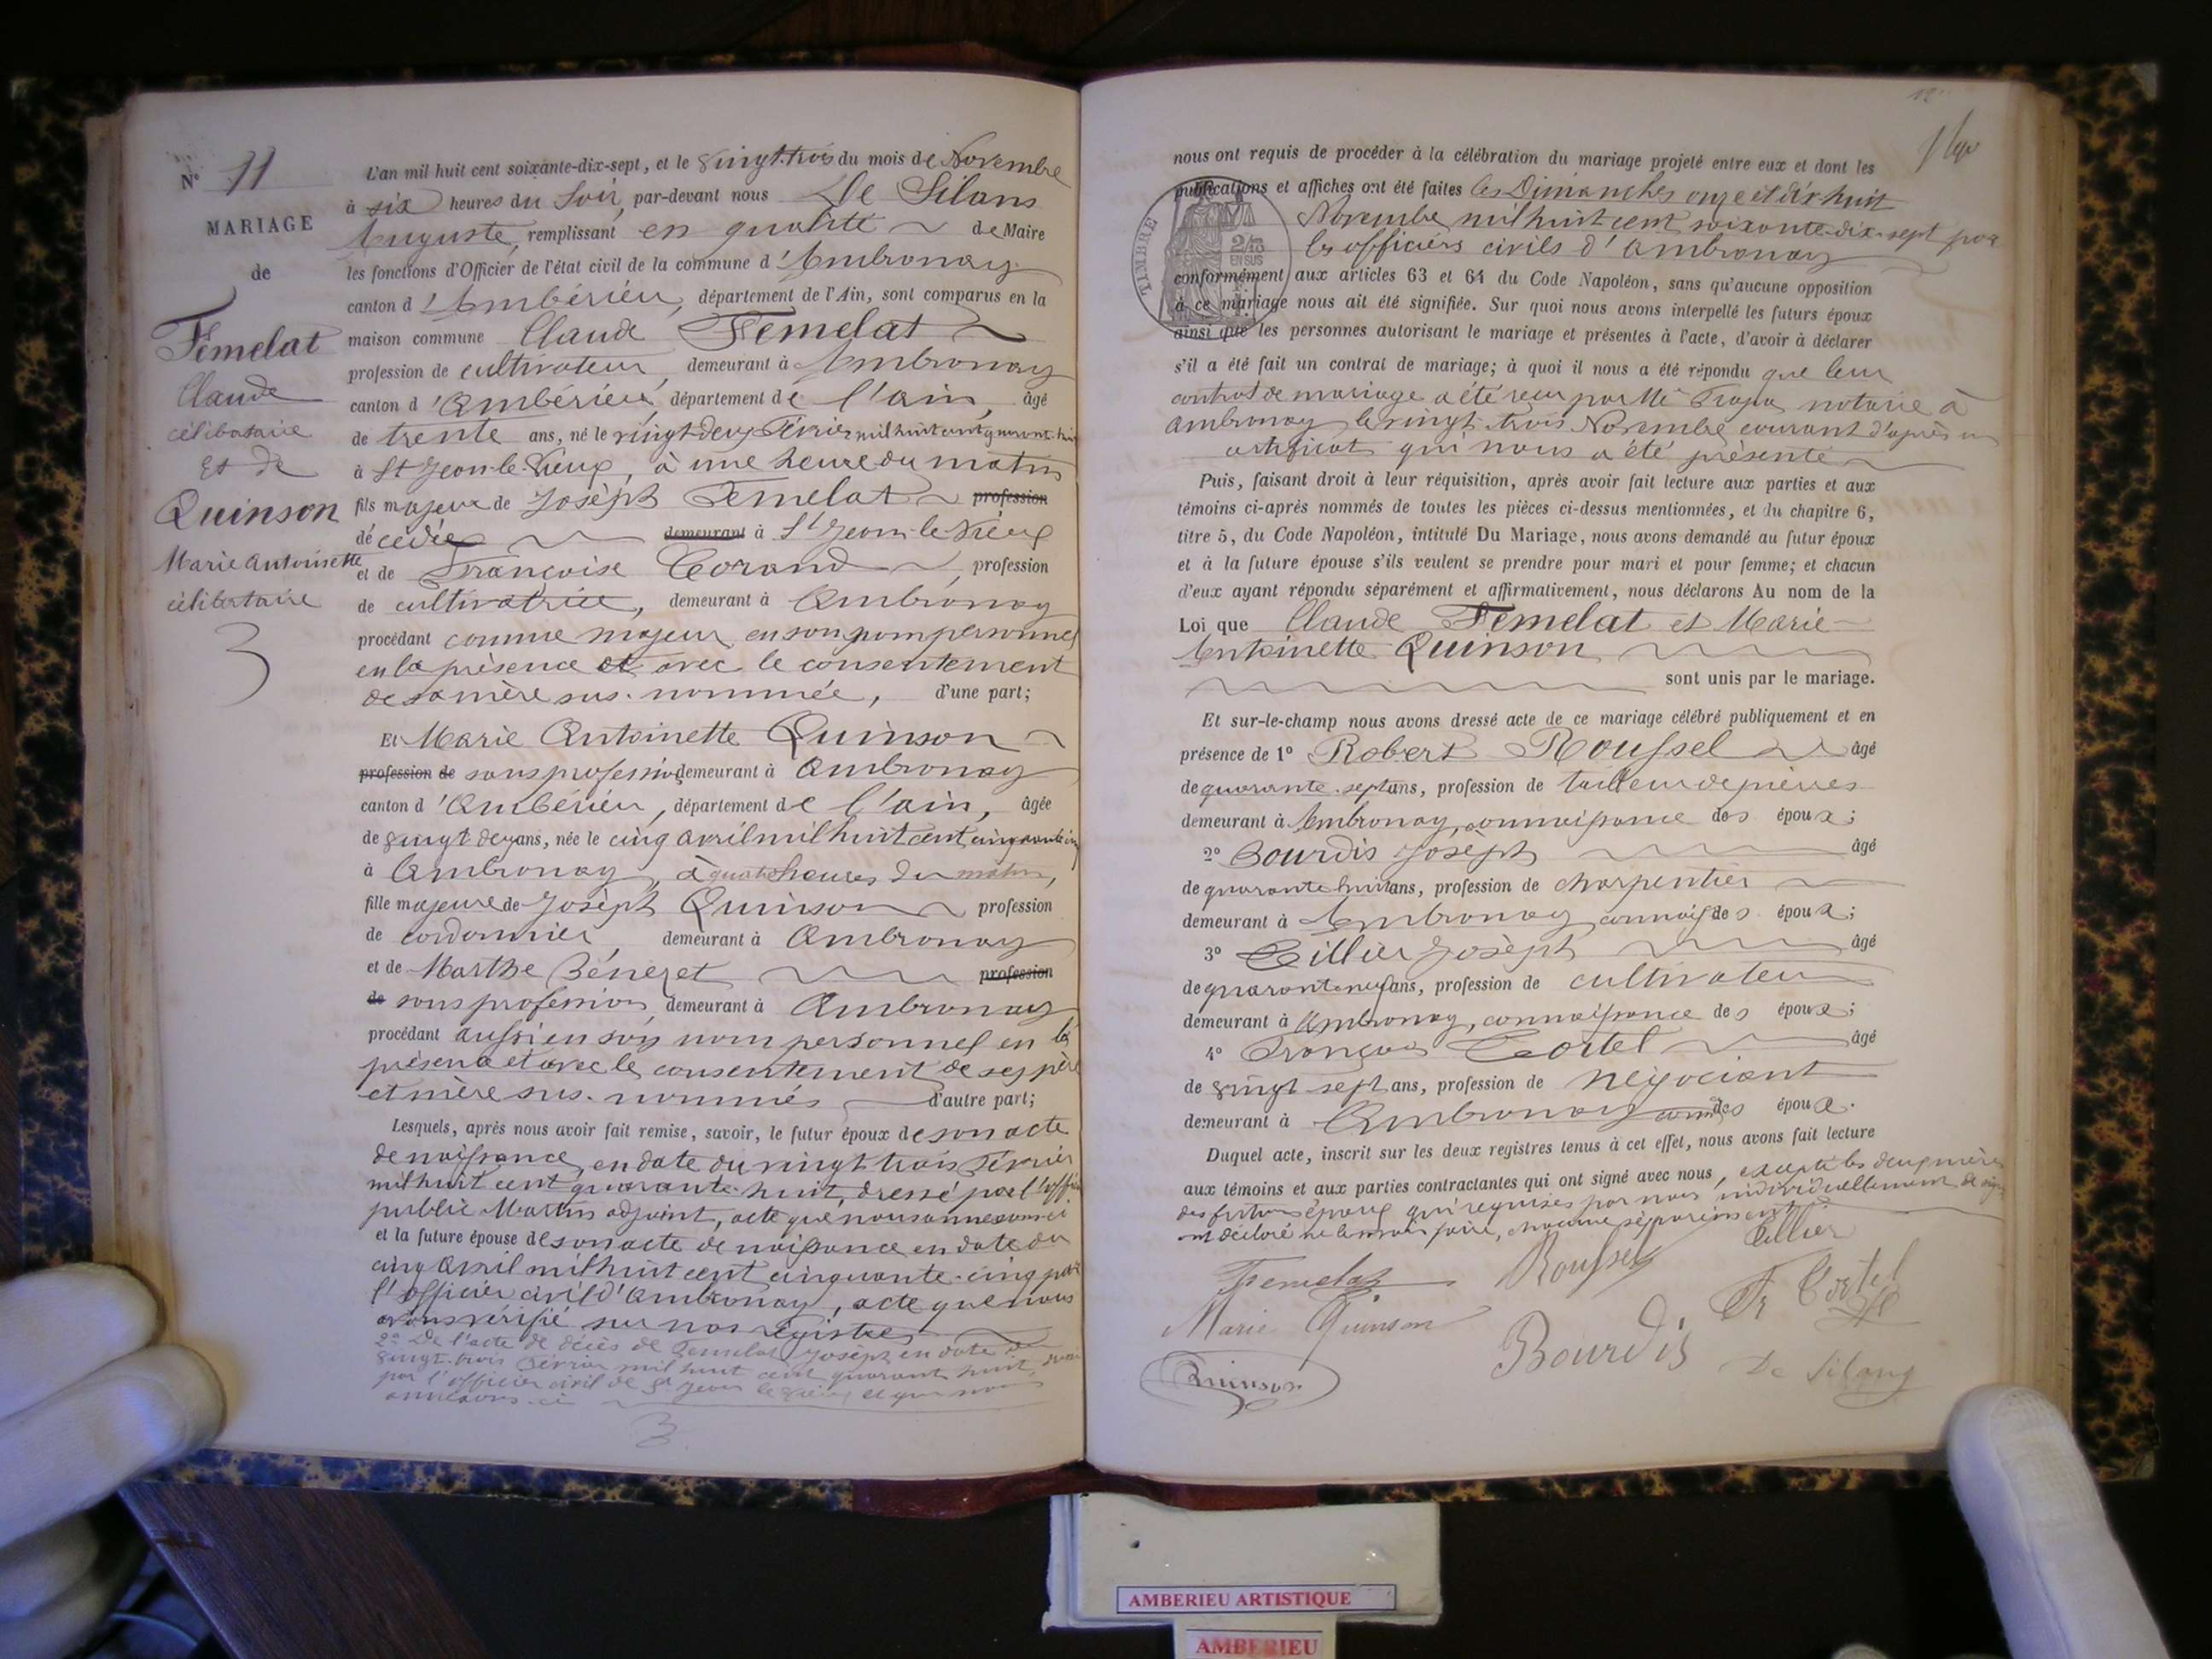 N° 11
MARIAGE
de
Femelat
Claude
célibataire
Et de
Quinson
Marie Antoinette
célibataire
L'an mil huit cent soixante-dix-sept, et le vingt-trois du mois de Novembre
à six heures du soir, par-devant nous De Silans
Auguste, remplissant en qualité de Maire
les fonctions d'Officier de l'état civil de la commune d'Ambronay
canton d'Ambérieu, département de l'Ain, sont comparus en la
maison commune Claude Femelat
profession de cultivateur, demeurant à Ambronay
canton d'Ambérieu, département de l'ain, âgé
de trente ans, né le vingt-deux Février mil huit cent quarante-huit
à St Jean-le-Vieux, à une heure du matin
fils majeur de Josèph Femelat profession
décédé demeurant à St Jean-le-Vieux
et de Françoise Corand, profession
de cultivatrice, demeurant à Ambronay
procédant comme majeur en son nom personnel
en la présence et avec le consentement
de sa mère sus-nommée, d'une part;
Et Marie Antoinette Quinson
profession de sans profession demeurant à Ambronay
canton d'Ambérieu, département de l'ain, âgée
de vingt deux ans, née le cinq avril mil huit cent cinquante cinq
à Ambronay, à quatre heures du matin,
fille majeure de Josèph Quinson profession
de cordonnier, demeurant à Ambronay
et de Marthe Béneret profession
de sans profession, demeurant à Ambronay
procédant aussi en son nom personnel en la
présence et avec le consentement de ses père
et mère sus-nommés d'autre part;
Lesquels, après nous avoir fait remise, savoir, le futur époux de son acte
de naissance, en date du vingt trois Février
mil huit cent quarante-huit, dressé par l'officier
public Martin adjoint, acte que nous annexons ici
et la future épouse de son acte de naissance en date du
cinq Avril mil huit cent cinquante-cinq par
l'officier civil d'Ambronay, acte que nous
avons vérifié sur nos registres
2° De l'acte de décès de Femelat Josèph en date du
vingt-trois Février mil huit cent quarante huit, dressé
par l'officier civil de St Jean le Vieux et que nous
annexons ici
12
nous ont requis de procéder à la célébration du mariage projeté entre eux et dont les
publications et affiches ont été faites les Dimanches onze et dix huit
Novembre mil huit cent soixante-dix-sept par
les officiers civils d'Ambronay
TIMBRE
2/10
EN SUS
conformément aux articles 63 et 64 du Code Napoléon, sans qu'aucune opposition
à ce mariage nous ait été signifiée. Sur quoi nous avons interpellé les futurs époux
ainsi que les personnes autorisant le mariage et présentes à l'acte, d'avoir à déclarer
s'il a été fait un contrat de mariage; à quoi il nous a été répondu que leur
contrat de mariage a été reçu par Me notaire à
Ambronay le vingt-trois Novembre courant d'après un
certificat qui nous a été présenté
Puis, faisant droit à leur réquisition, après avoir fait lecture aux parties et aux
témoins ci-après nommés de toutes les pièces ci-dessus mentionnées, et du chapitre 6,
titre 5, du Code Napoléon, intitulé Du Mariage, nous avons demandé au futur époux
et à la future épouse s'ils veulent se prendre pour mari et pour femme; et chacun
d'eux ayant répondu séparément et affirmativement, nous déclarons Au nom de la
Loi que Claude Femelat et Marie
Antoinette Quinson
sont unis par le mariage.
Et sur-le-champ nous avons dressé acte de ce mariage célébré publiquement et en
présence de 1° Robert Roussel âgé
de quarante-sept ans, profession de tailleur de pierres
demeurant à Ambronay, connaissance des époux;
2° Bourdis Josèph âgé
de quarante huit ans, profession de charpentier
demeurant à Ambronay connaiss des époux;
3° Cillier Josèph âgé
de quarante neuf ans, profession de cultivateur
demeurant à Ambronay, connaissance des époux;
4° François Cortel âgé
de vingt-sept ans, profession de négociant
demeurant à Ambronay conn des époux.
Duquel acte, inscrit sur les deux registres tenus à cet effet, nous avons fait lecture
aux témoins et aux parties contractantes qui ont signé avec nous, excepté les deux mères
des futurs époux qui requises par nous individuellement de signer
ont déclaré ne le savoir faire, chacune séparément
Femelat Roussel Cillier
Marie Quinson Fr Cortel
Quinson Bourdis De Silans
AMBERIEU ARTISTIQUE
AMBERIEU